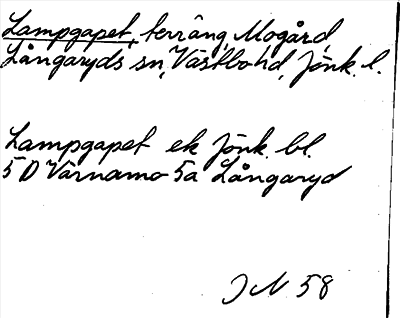 Lampgapet, terräng, Mogård,
Långaryds sn, Västbo hd, Jönk. l.
Lampgapet ek Jönk. bl.
5 D Värnamo 5a Långaryd
JN 58